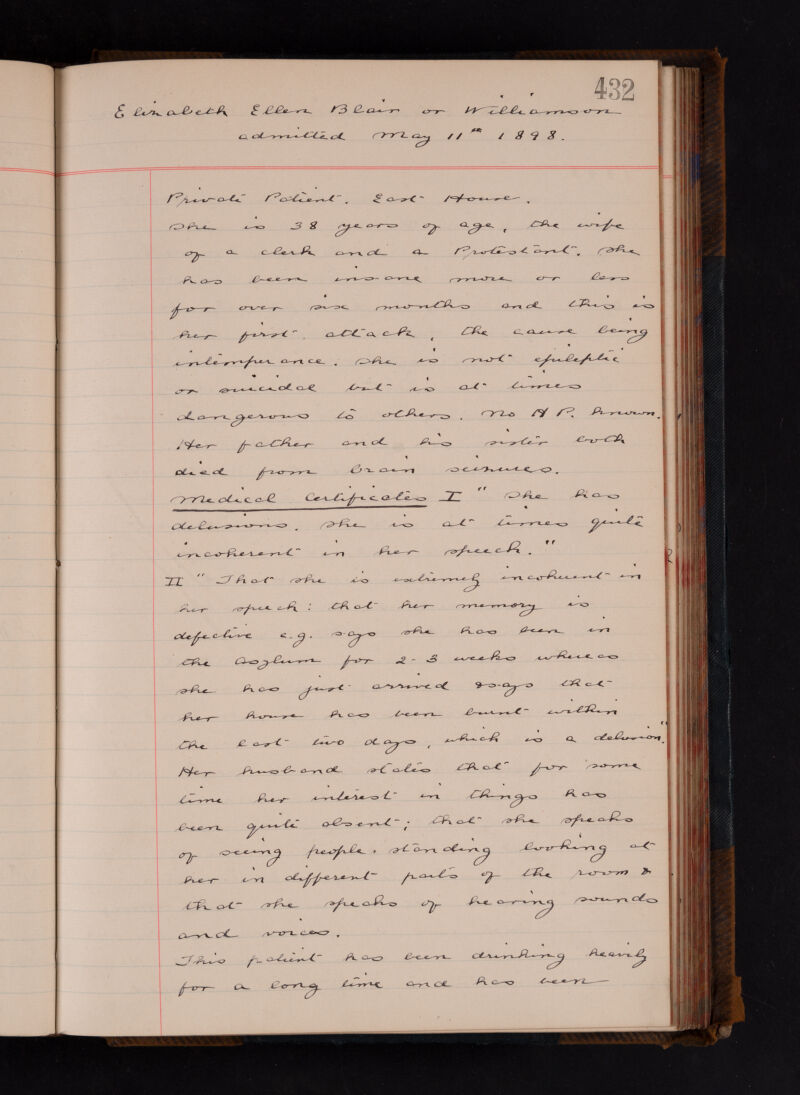 432
Elizabeth Ellen Blair or Williamson
admitted May 11th 1898.
Private Patient. East House.
She is 38 years of age, the wife
of a clerk and a Protestant. She
has been insane more or less
for over six months and this is
her first attack, the cause being
intemperance. She is not epileptic
or suicidal but is at times
dangerous to others. No H P. known.
Her father and his sister both
died from brain seizures.
Medical Certificates I "She has
delusions. She is at times quite
incoherent in her speech."
II "That she is extremely incoherent in
her speech: that her memory is
defective e.g. says she has been in
the Asylum for 2-3 weeks whereas
she has just arrived & says that
her house has been burnt within
the last two days, which is a delusion."
Her husband states that for some
time her interest in things has
been quite absent; that she speaks
of seeing people standing looking at
her in different parts of the room &
that she speaks of hearing sounds
and voices.
This patient has been drinking heavily
for a long time and has been